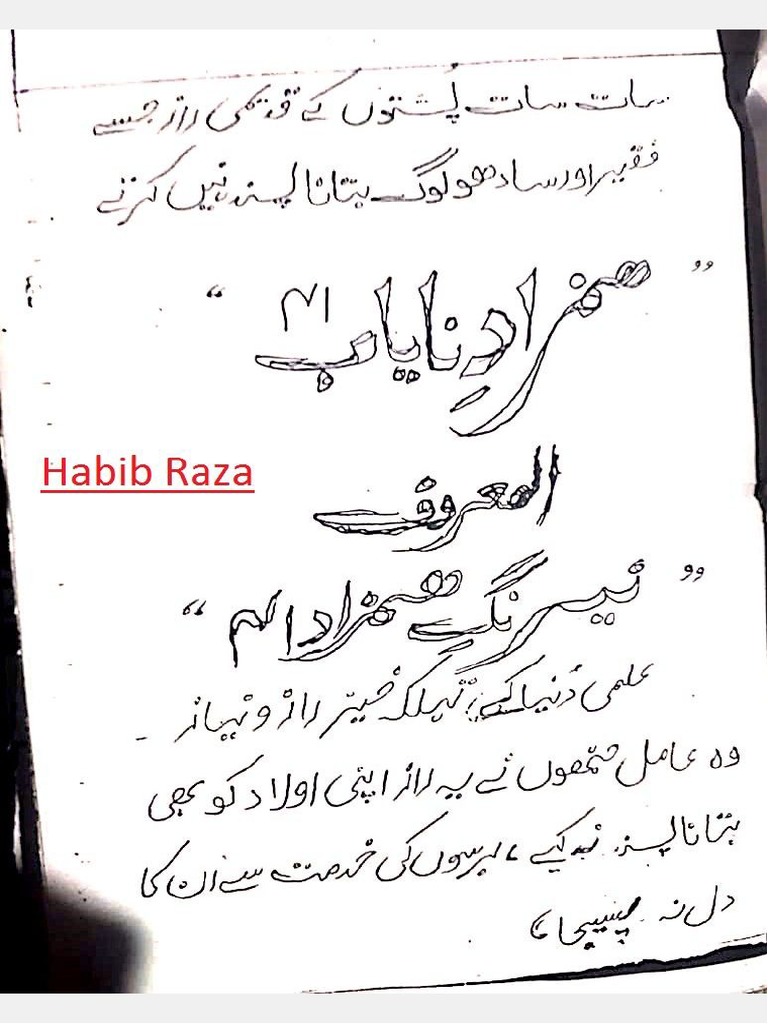 سات سات پُشتوں کے قدیمی راز جسے
فقیر اور سادھو لوگ بتانا پسند نہیں کرتے
”ہمزادِ نایاب ۴۱“
Habib Raza
المعروف
”نیرنگِ ہمزاد ۴۱“
علمی دُنیا کے تہلکہ خیز راز و نیاز ۔
وہ عامل جنھوں نے یہ راز اپنی اولاد کو بھی
بتانا پسند نہ کیے ، برسوں کی خدمت سے ان کا
دل نہ پسیجا ،